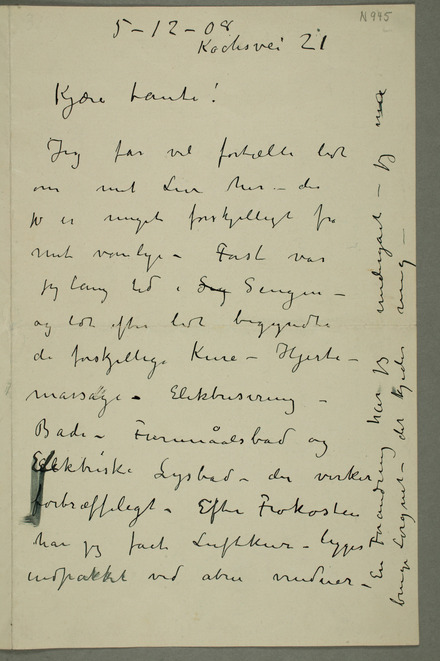 N 945
5-12-08
Kochsvei 21
Kjære tante!
Jeg får vel fortælle lidt
om mit Liv her – der
jo er meget forskjelligt fra
mit vanlige – Først var
jeg lang tid i Seng Sengen –
og lidt efter lidt begyndte
de forskjellige Kure – Hjerte-
massage – Elektrisering –
Bade – Furunåalsbad og
Elektriske Lysbad – der virker
fortræffeligt – Efter Frokosten
har jeg faat Luftkur – ligges
indpakket ved åbne vinduer –
En Forandring har jeg undergaat – Jeg må
bruge Lorgnet – det kjeder mig –